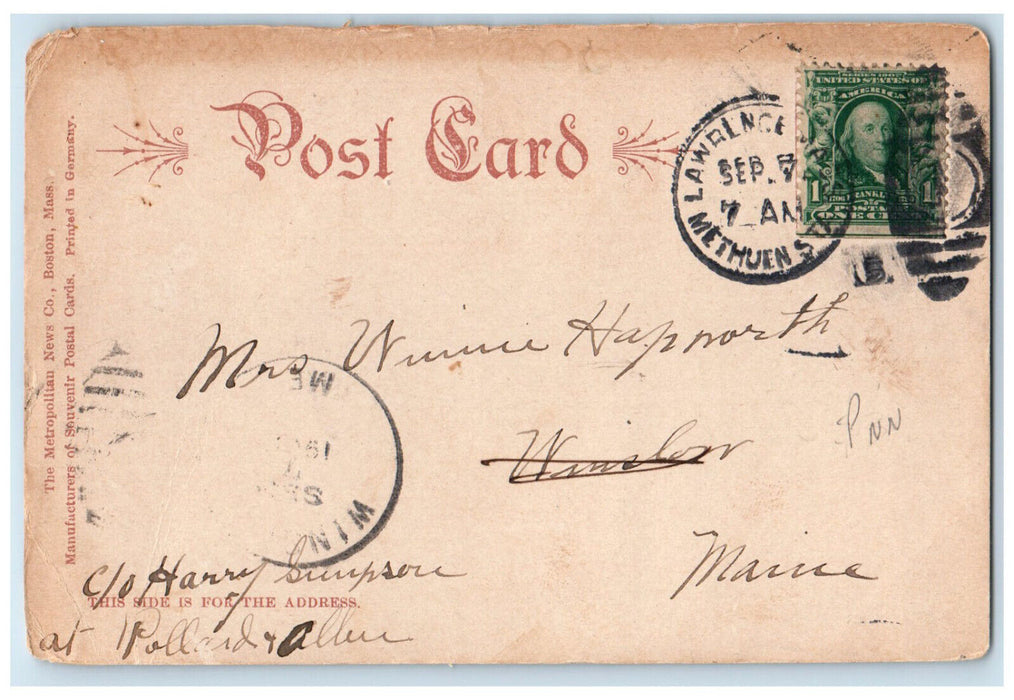 Post Card
LAWRENCE
SEP. 7
7 AM
METHUEN
SERIES 1902
UNITED STATES OF
AMERICA
1 1
FRANKLIN
POSTAGE
ONE CENT
The Metropolitan News Co., Boston, Mass.
Manufacturers of Souvenir Postal Cards. Printed in Germany.
Mrs Winnie Hapworth
Winslow
PNN
Maine
ME
WIN
c/o Harry Simpson
THIS SIDE IS FOR THE ADDRESS.
at Pollard & Allen